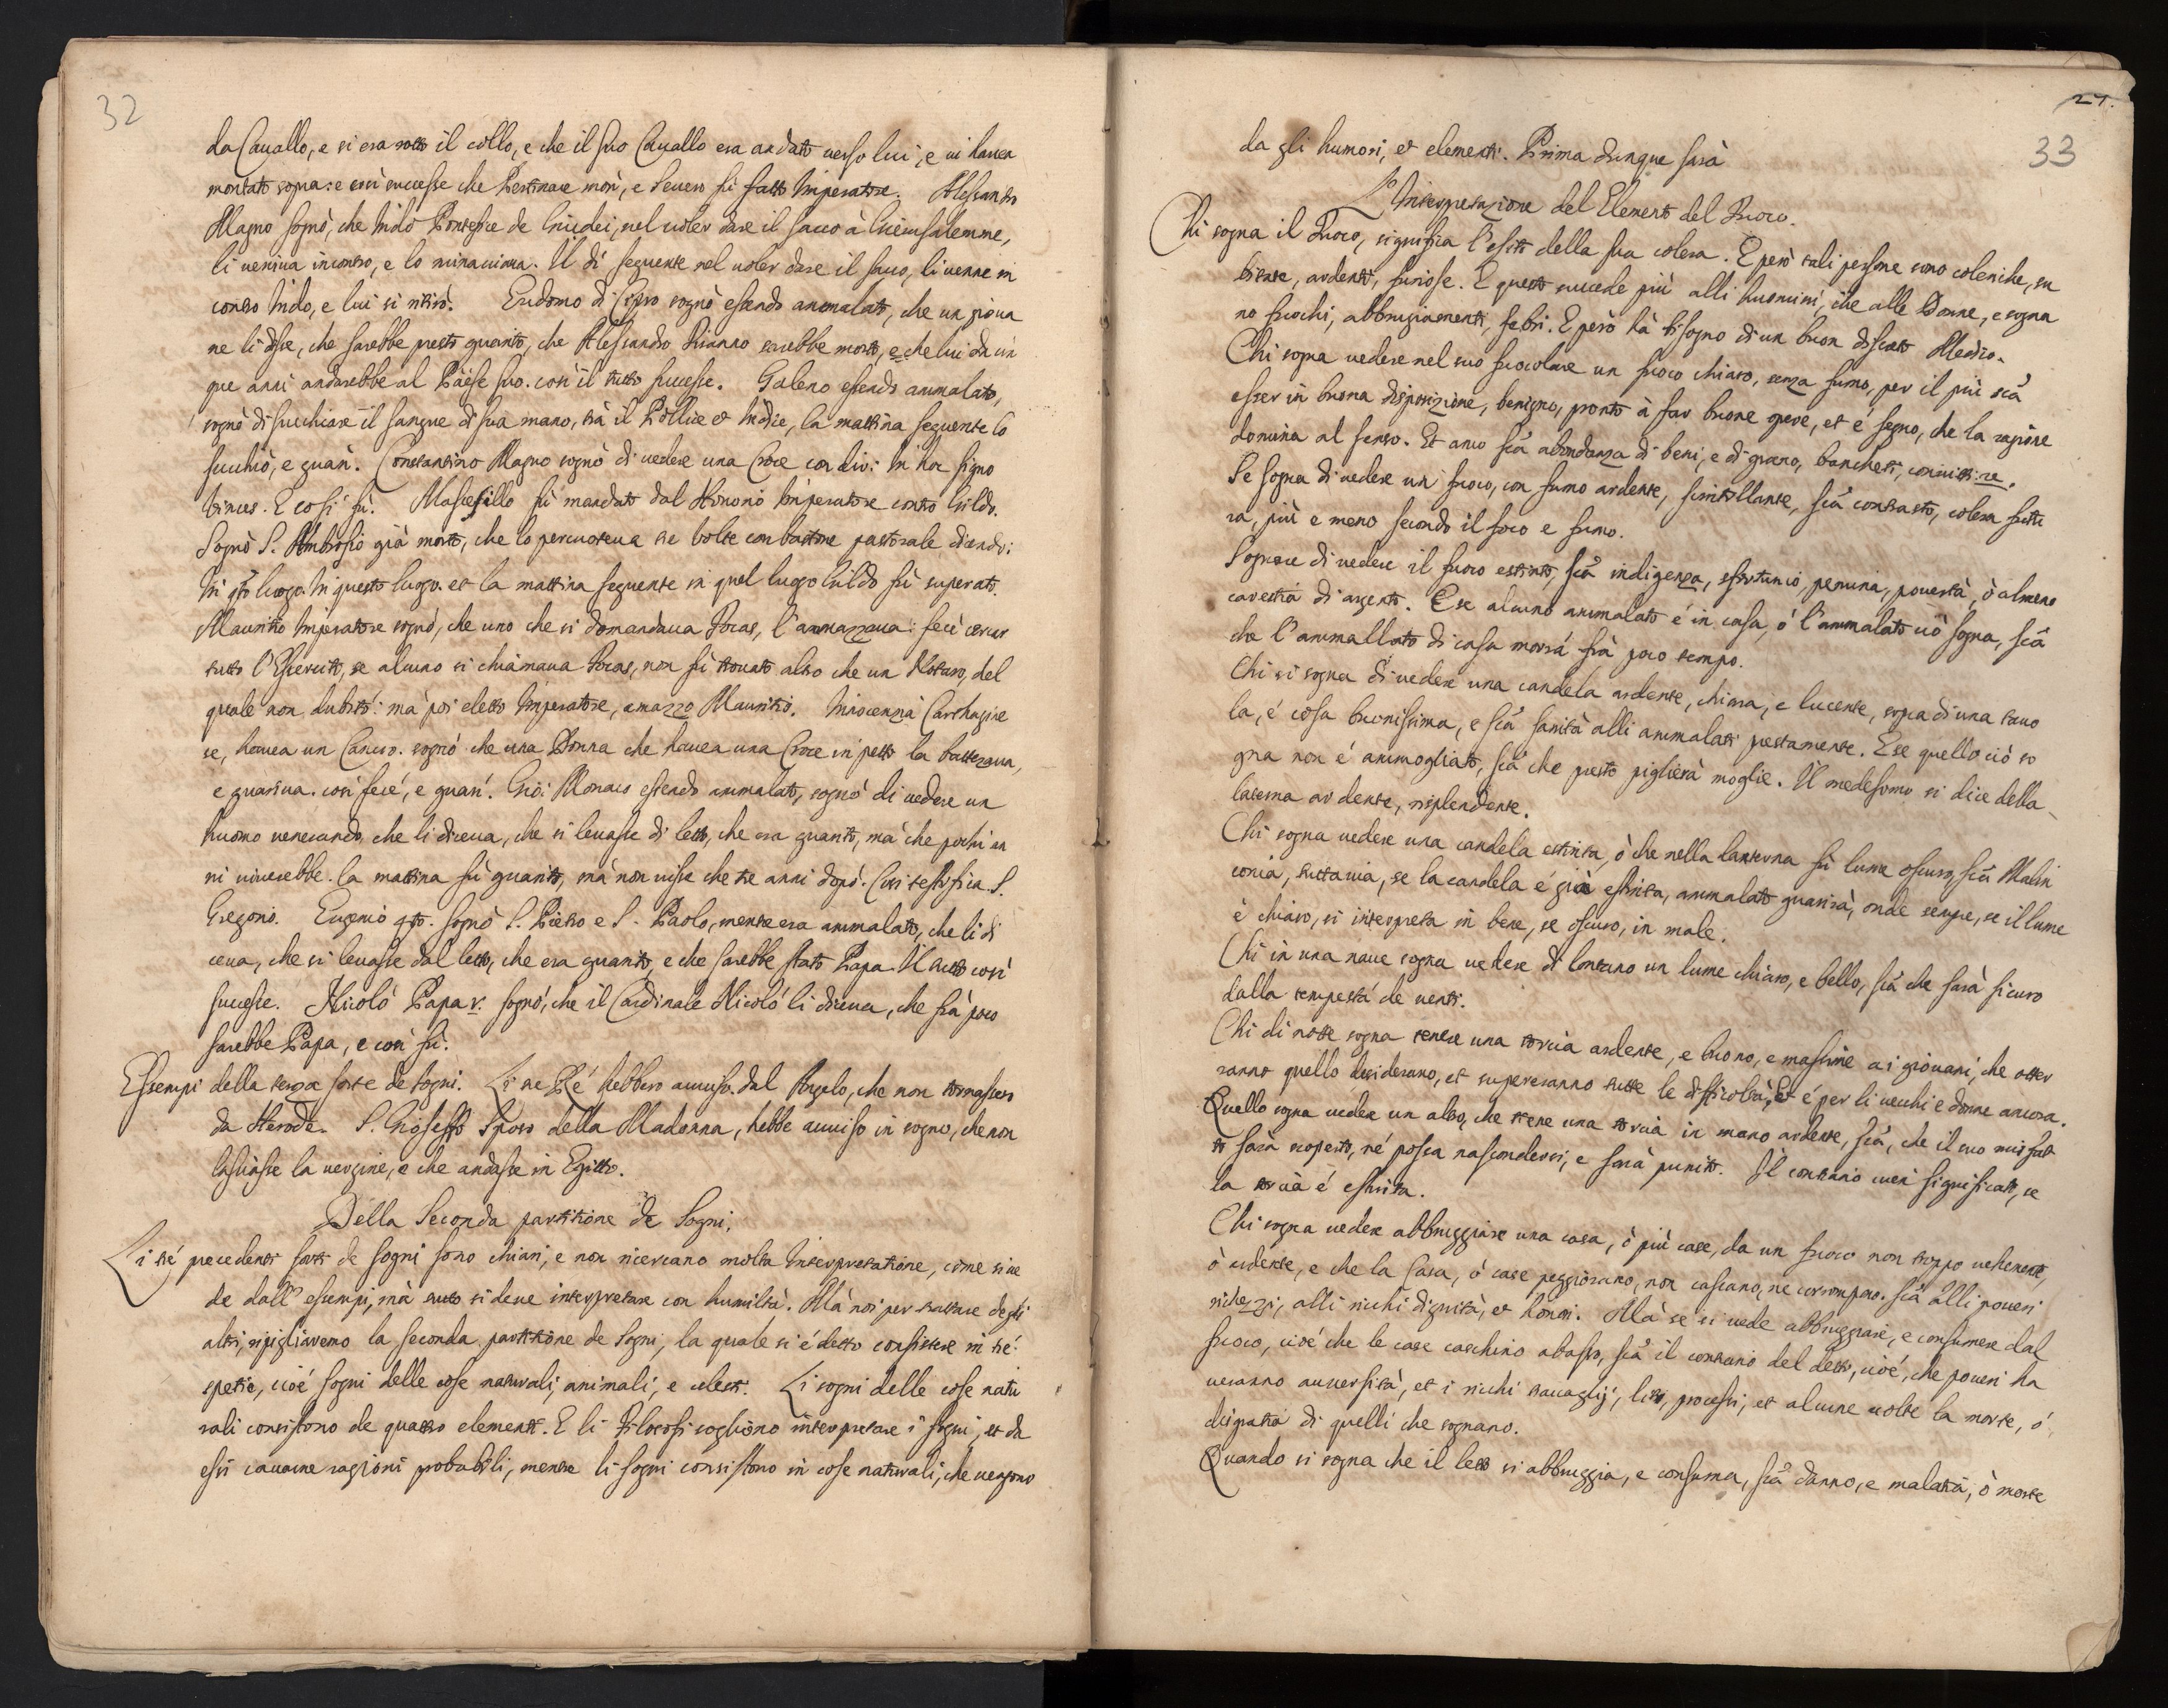 32
da Cauallo, e si era rotto il collo, e che il suo Cauallo era andato uerso lui, e ui hauea
montato sopra: e così successe che Pertinace morì, e Seuero fù fatto Imperatore. Alessandro
Magno sognò, che Pontefice de Giudei, nel uoler dare il sacco à Gierusalemme,
li ueniua incontro, e lo minacciaua. Il dì seguente nel uoler dare il sacco, li uenne in
contro, e lui si ritirò. Eudomo di Cipro sognò essendo ammalato, che un gioua
ne li disse, che sarebbe presto guarito, che Alessandro Tiranno sarebbe morto, e che lui da cin
que anni andarebbe al Paese suo. così il tutto successe. Galeno essendo ammalato,
sognò di succhiare il sangue di sua mano, trà il Pollice et Indice, la mattina seguente lo
succhiò, e guarì. Constantino Magno sognò di uedere una Croce con dirsi: In hoc signo
Vinces. E così fù. Mascesillo fù mandato dal Imperatore contro Gildo.
Sognò S. Ambrosio già morto, che lo percuoteua tre uolte con bastone pastorale dicendo:
In qto luogo. In questo luogo. et la mattina seguente in quel luogo Gildo fù superato.
Mauritio Imperatore sognò, che uno che si domandaua Focas, l'ammazzaua: fecè cercar
tutto l'Esercito, se alcuno si chiamaua Focas, non fù trouato altro che un Notaro, del
quale non dubitò: mà poi eletto Imperatore, amazzo Mauritio. Innocenzia Carthagine
se, hauea un Cancro. sognò che una Donna che hauea una Croce in petto la battezaua,
e guariua. così fecé, e guarì. Gio: Monaco essendo ammalato, sognò di uedere un
huomo venerando, che li diceua, che si leuasse di letto, che era guarito, mà che pochi an
ni uiuerebbe. la mattina fù guarito, mà non uisse che tre anni dopò. Così testifica S.
Gregorio. Eugenio 4to. sognò S. Pietro e S. Paolo, mentre era ammalato, che li di
ceua, che si leuasse dal letto, che era guarito, e che sarebbe stato Papa. Il tutto così
successe. Nicolò Papa V. sognò, che il Cardinale Nicolò li diceua, che frà poco
sarebbe Papa, e così fù.
Essempi della terza sorte de sogni. Li tre Ré hebbero auuiso dal Angelo, che non tornassero
da Herode. S. Gioseffo Sposo della Madonna, hebbe auuiso in sogno, che non
lasciasse la uergine, e che andasse in Egitto.
Della Seconda partitione de Sogni.
Li tré precedenti sorti de sogni sono chiari, e non ricercano molta Interpretatione, come si ue
de dall' essempi, mà tutto si deue interpretare con humiltà. Mà noi per trattare degli
altri, ripigliaremo la seconda partitione de Sogni, la quale si è detto consistere in tré
spetie, cioé sogni delle cose naturali, animali, e celesti. Li sogni delle cose natu
rali consistono de quattro elementi. E li Filosofi sogliono interpretare i sogni, et da
essi cauarne ragioni probabili, mentre li sogni consistono in cose naturali, che uengono
21.
33
da gli humori, et elementi. Prima dunque sarà
L'Interpretazione del Elemento del Fuoco.
Chi sogna il Fuoco, significa l'esito della sua colera. E però tali persone sono coleriche, su
bitane, ardenti, furiose. E questo succede più alli huomini, che alle Donne, e sogna
no fuochi, abbrugiamenti, febri. E però hà bisogno di un buon discreto Medico.
Chi sogna uedere nel suo fuocolare un fuoco chiaro, senza fumo, per il più sia
esser in buona disposizione, benigno, pronto à far buone opere, et é segno, che la ragione
domina al senso. Et anco sia abondanza di beni, e di grano, banchetti, conuitti. re.
Se sogna di uedere un fuoco, con fumo ardente, scintillante, sia contrasto, colera futu
ra, più e meno secondo il foco e fumo.
Sognare di uedere il fuoco estinto, sia indigenza, infortunio, penuria, pouertà, ò almeno
carestia di argento. E se alcuno ammalato é in casa, ò l'ammalato ciò sogna, sia
che l'ammallato di casa morrà frà poco tempo.
Chi si sogna di uedere una candela ardente, chiara, e lucente, sopra di una tauo
la, é cosa buonissima, e sia sanità alli ammalati prestamente. E se quello ciò so
gna non é ammogliato, sia che presto piglierà moglie. Il medesimo si dice della
laterna ardente, risplendente.
Chi sogna uedere una candela estinta, ò che nella lanterna fù lume oscuro, sia Malin
conia, tuttauia, se la candela é già estinta, ammalato guarirà, onde sempre, se il lume
è chiaro, si interpreta in bene, se oscuro, in male.
Chi in una naue sogna uedere di lontano un lume chiaro, e bello, sia che sarà sicuro
dalla tempestà de uenti.
Chi di notte sogna tenere una torcia ardente, e buono, e massime ai giouani, che otter
ranno quello desiderano, et supereranno tutte le difficoltà, Et é per li uecchi e donne ancora.
Quello sogna uedere un altro, che tiene una torcia in mano ardente, sia, che il suo misfat
to sarà scoperto, né possa nascondersi, e sarà punito. Il contrario uien significato, se
la torcia é estinta.
Chi sogna uedere abbruggiare una casa, ò più case, da un fuoco non troppo uehemente,
ò ardente, e che la Casa, ò case peggiorano, non cascano, ne corrompono. sia alli poueri
richezzi, alli ricchi dignità, et honori. Mà se si uede abbruggiare, e consumere dal
fuoco, cioé che le case caschino abasso, sia il contrario del detto, cioé, che poueri ha
ueranno auuersità, et i ricchi trauagli, liti, processi, et alcune uolte la morte, ò
disgratia di quelli che sognano.
Quando si sogna che il letto si abbruggia, e consuma, sia danno, e malatia, ò morte